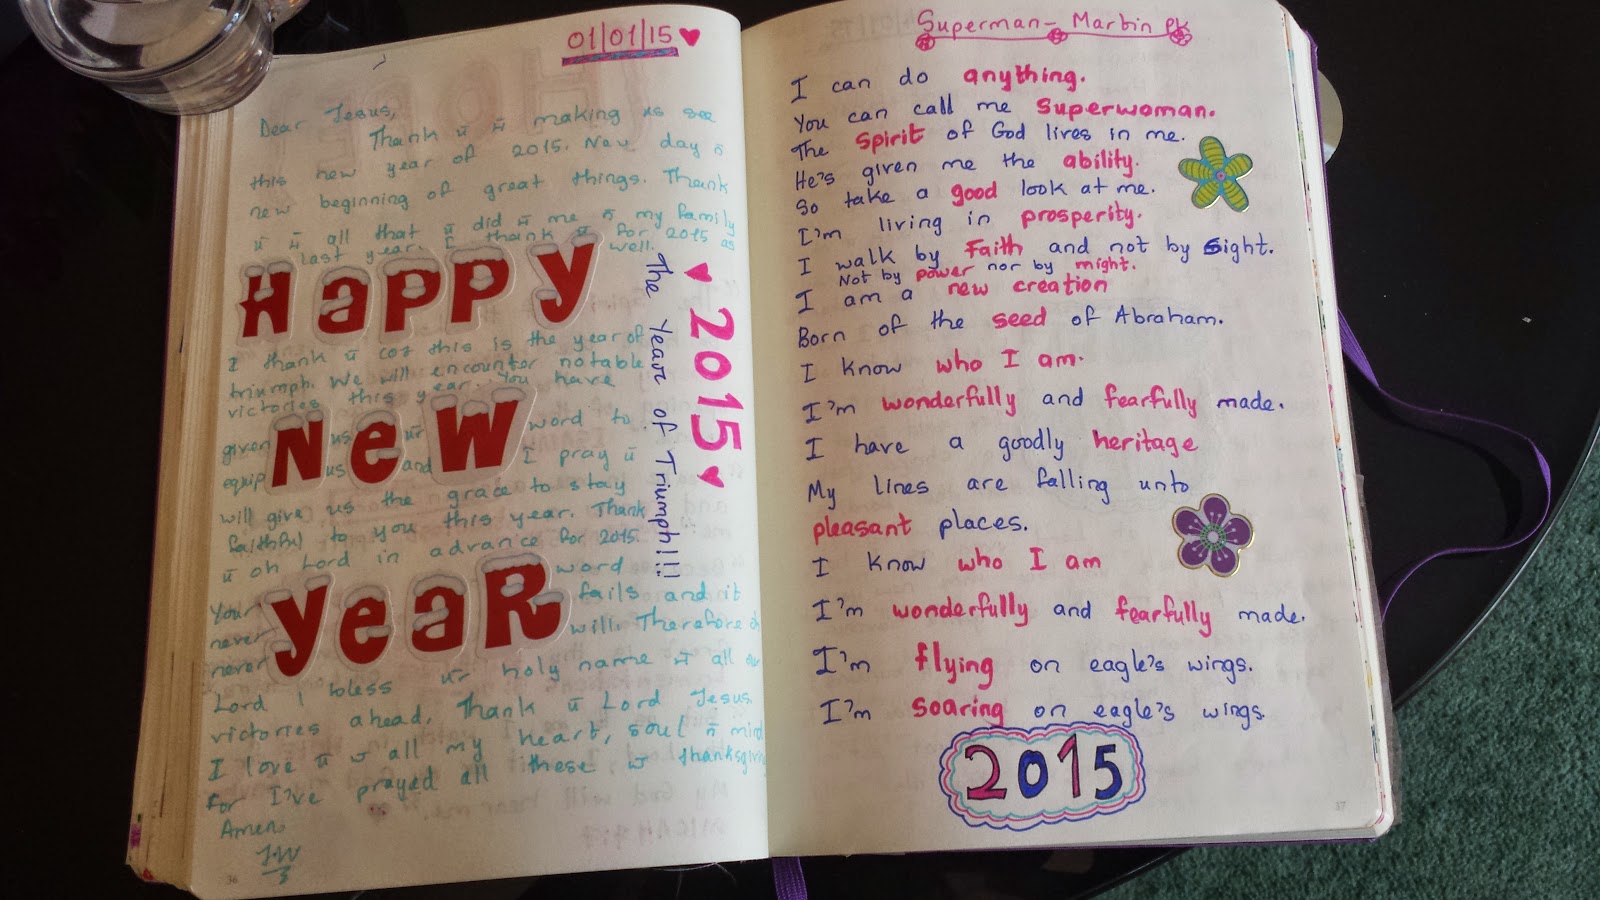 01/01/15
Dear Jesus,
Thank ū 4 making us see
this new year of 2015. New day n̄
new beginning of great things. Thank
ū 4 all that ū did 4 me n̄ my family
last year. I thank ū for 2015 as
well.
Happy
I thank ū coz this is the year of
triumph. We will encounter notable
victories this year. You have
given us ūr word to
New
equip us and I pray ū
will give us the grace to stay
faithful to you this year. Thank
ū oh Lord in advance for 2015.
Your word
never fails and it
Year
never will. Therefore oh
Lord I bless ūr holy name 4 all our
victories ahead. Thank ū Lord Jesus.
I love ū w all my heart, soul n̄ mind
for I've prayed all these w thanksgiving
Amen
36
The Year of Triumph!!!
2015
Superman - Marbin
I can do anything.
You can call me Superwoman.
The Spirit of God lives in me.
He's given me the ability.
So take a good look at me.
I'm living in prosperity.
I walk by Faith and not by Sight.
Not by power nor by might.
I am a new creation
Born of the seed of Abraham.
I know who I am.
I'm wonderfully and fearfully made.
I have a goodly heritage
My lines are falling unto
pleasant places.
I know who I am
I'm wonderfully and fearfully made.
I'm flying on eagle's wings.
I'm soaring on eagle's wings.
2015
37